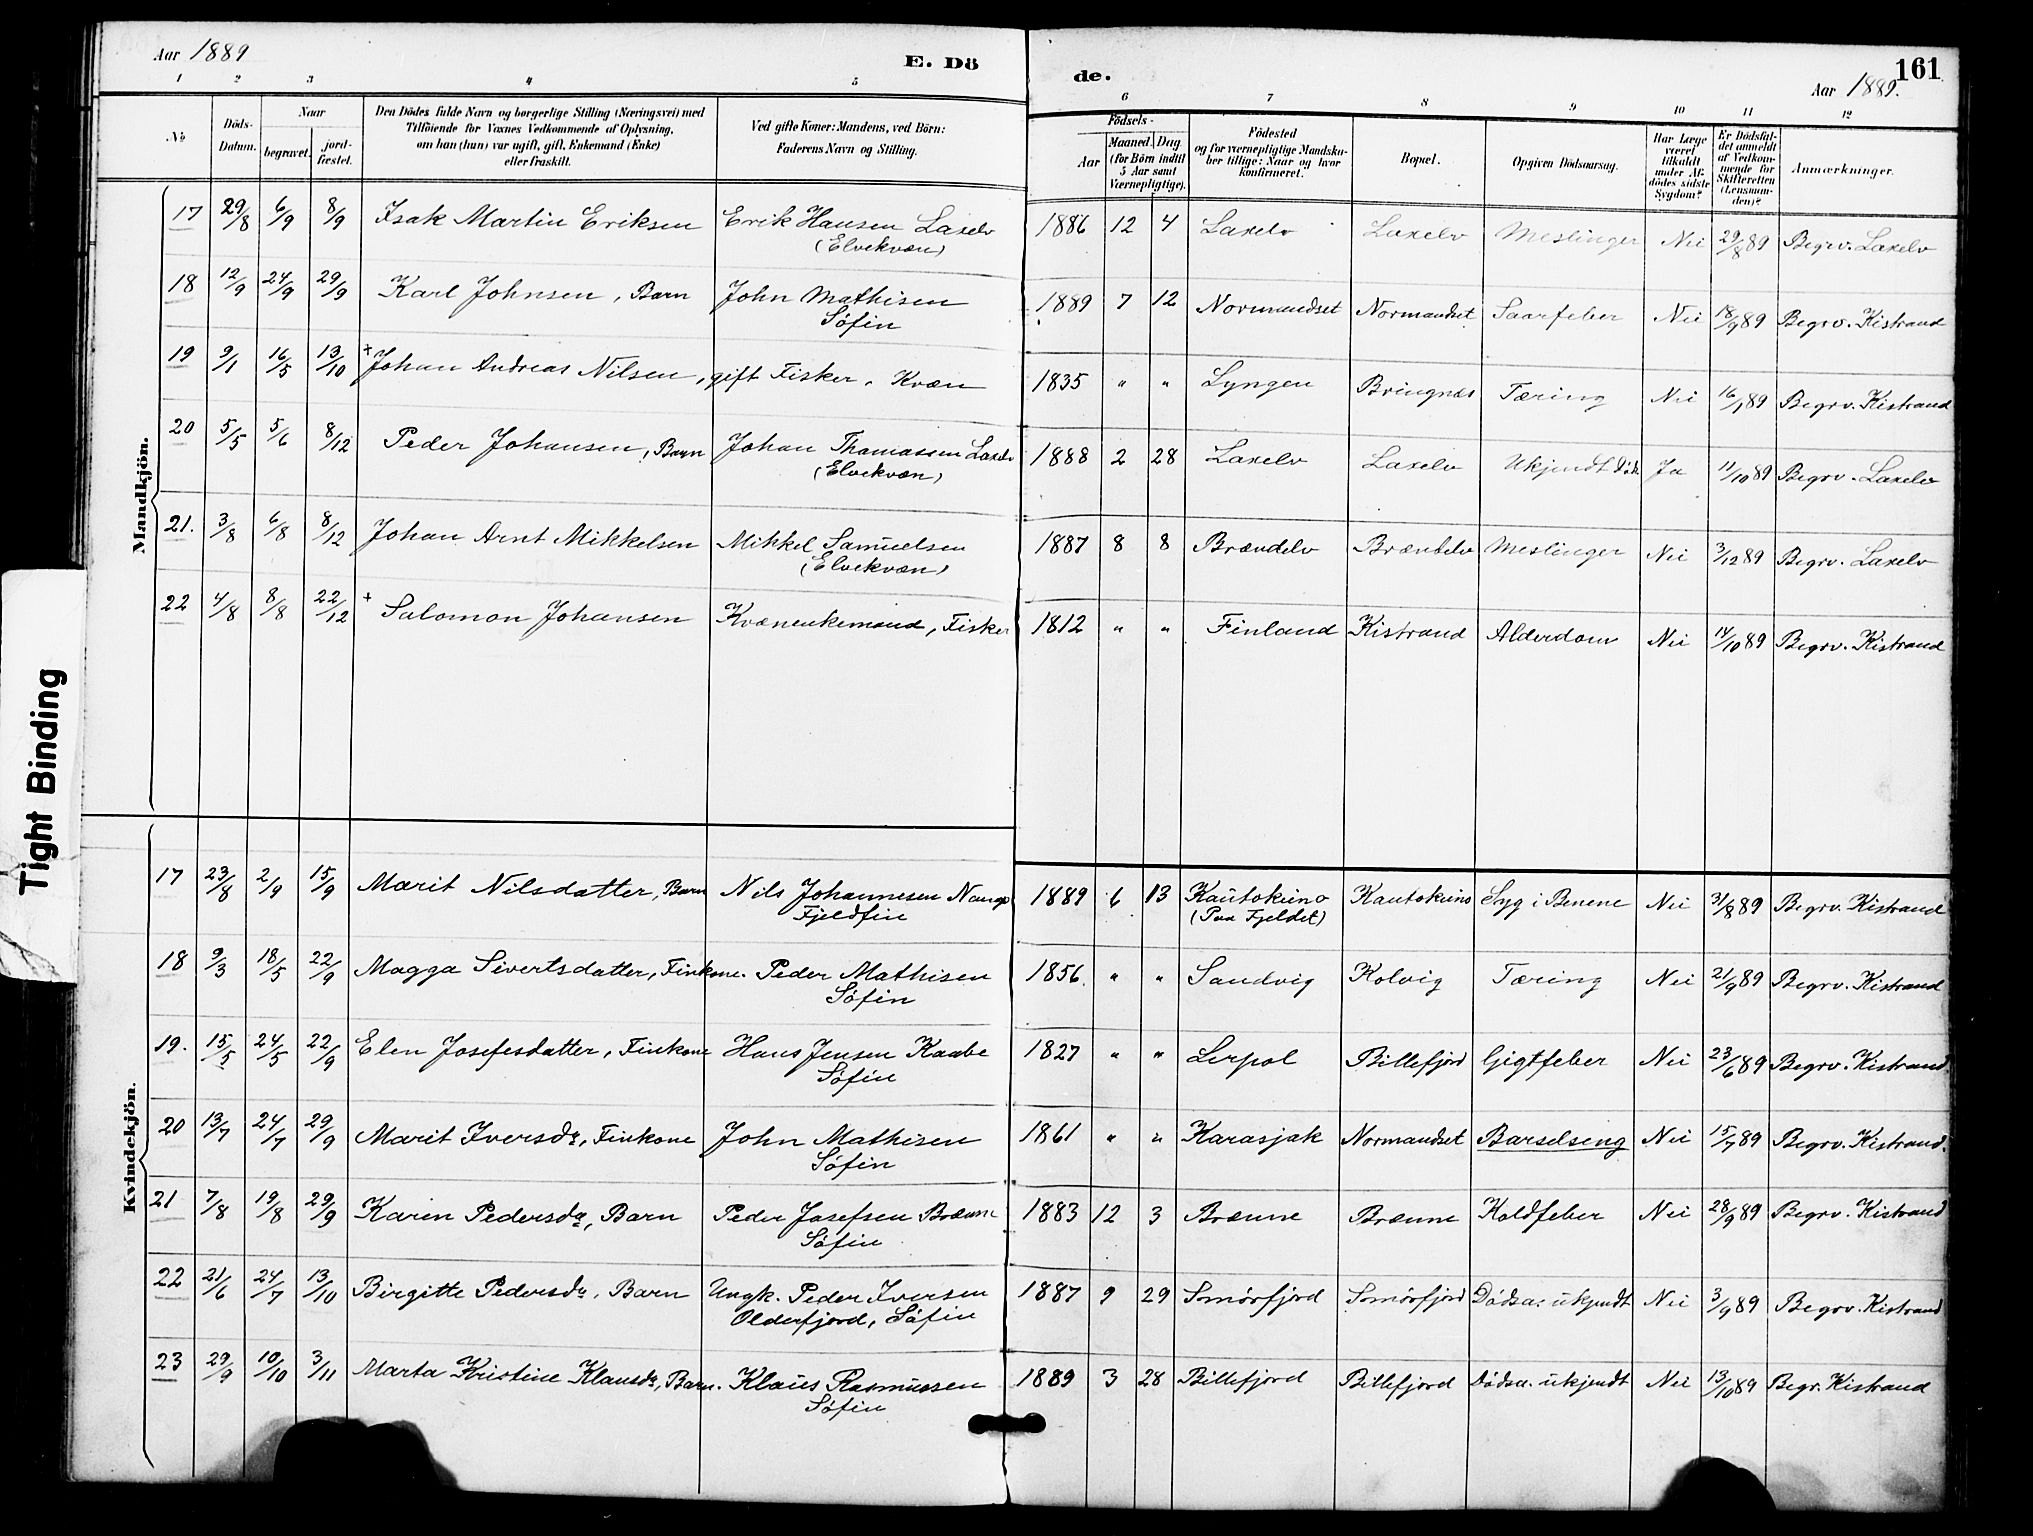 Aar 1889
E. Dö
de.
161
Aar 1889.
1 2 3 4 5 6 7 8 9 10 11 12
No
Döds-Datum.
Naar
begravet.
jord-fæstet.
Den Dödes fulde Navn og borgerlige Stilling (Næringsvei) med
Tilföiende for Voxnes Vedkommende af Oplysning,
om han (hun) var ugift, gift, Enkemand (Enke)
eller fraskilt.
Ved gifte Koner: Mandens, ved Börn:
Faderens Navn og Stilling.
Födsels-
Aar
Maaned. Dag
(for Börn indtil
5 Aar samt
Værnepligtige).
Födested
og for værnepligtige Mandska-
ber tillige: Naar og hvor
konfirmeret.
Bopæl.
Opgiven Dödsaarsag.
Har Læge
været
tilkaldt
under Af-
dödes sidste
Sygdom?
Er Dödsfal-
det anmeldt
af Vedkom-
mende for
Skifteretten
(Lensman-
den)?
Anmærkninger.
Mandkjön.
17 29/8 6/9 8/9 Isak Martin Eriksen Erik Hansen Laxelv 1886 12 4 Laxelv Laxelv Meslinger Nei 29/8 89 Begrv. Laxelv
(Elvekvæn)
18 12/9 24/9 29/9 Karl Johnsen, Barn John Mathisen 1889 7 12 Normandset Normandset Saarfeber Nei 18/9 89 Begrv. Kistrand
Söfin
19 9/1 16/5 13/10 + Johan Andreas Nilsen, gift Fisker. Kvæn 1835 " " Lyngen Bringnæs Tæring Nei 16/1 89 Begrv. Kistrand
20 5/5 5/6 8/12 Peder Johansen, Barn Johan Thomassen Laxelv 1888 2 28 Laxelv Laxelv Ukjendt Döds Ja 11/10 89 Begrv. Laxelv
(Elvekvæn)
21. 3/8 6/8 8/12 Johan Arnt Mikkelsen Mikkel Samuelsen 1887 8 8 Brændelv Brændelv Meslinger Nei 3/12 89 Begrv. Laxelv
(Elvekvæn)
22 4/8 8/8 22/12 + Salomon Johansen Kvænenkemand, Fisker 1812 " " Finland Kistrand Alderdom Nei 14/10 89 Begrv. Kistrand
Kvindekjön.
17 23/8 2/9 15/9 Marit Nilsdatter, Barn Nils Johannesen Nango 1889 6 13 Kautokeino Kautokeino Syg i Benene Nei 31/8 89 Begrv. Kistrand
Fjeldfin (Paa Fjeldet)
18 9/3 18/5 22/9 Magga Sivertsdatter, Finkone. Peder Mathisen 1856. " " Sandvig Kolvig Tæring Nei 21/9 89 Begrv. Kistrand
Söfin
19. 15/5 24/5 22/9 Elen Josefesdatter, Finkone Hans Jensen Kaabe 1827 " " Lerpol Billefjord Gigtfeber Nei 23/6 89 Begrv. Kistrand.
Söfin
20 13/7 24/7 29/9 Marit Iversdr, Finkone John Mathisen 1861 " " Karasjok Normandset Barselseng Nei 15/7 89 Begrv. Kistrand.
Söfin
21 7/8 19/8 29/9 Karen Pedersdr, Barn Peder Josefsen Brænne 1883 12 3 Brænne Brænne Koldfeber Nei 28/9 89 Begrv. Kistrand
Söfin
22 21/6 24/7 13/10 Birgitte Pedersdr, Barn Ungk. Peder Iversen 1887 9 29 Smörfjord Smörfjord Dödsa. ukjendt Nei 3/9 89 Begrv. Kistrand
Olderfjord, Söfin
23 29/9 10/10 3/11 Marta Kristine Klausdr, Barn. Klaus Rasmussen 1889 3 28 Billefjord Billefjord Dödsa. ukjendt Nei 13/10 89 Begr. Kistrand
Söfin
Tight Binding